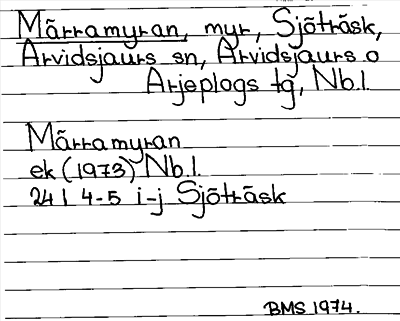 Märramyran, myr, Sjöträsk,
Arvidsjaurs sn, Arvidsjaurs o
Arjeplogs tg, Nb.l.
Märramyran
ek (1973) Nb.l.
24 I 4-5 i-j Sjöträsk
BMS 1974.